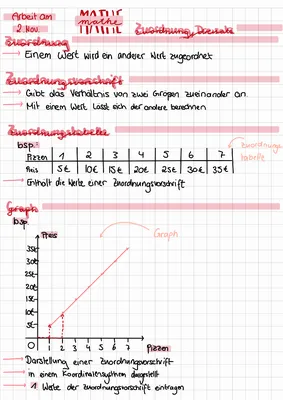 Arbeit am
2. Nov.
MATHE
mathe
MATHE
Zuordnung, Dreisatz
Zuordnung
→ Einem Wert wird ein anderer Wert zugeordnet
Zuordnungsvorschrift
→ Gibt das Verhältnis von zwei Größen zueinander an.
→ Mit einem Wert lässt sich der andere berechnen
Zuordnungstabelle
bsp.:
Pizzen 1 2 3 4 5 6 7
Preis 5€ 10€ 15€ 20€ 25€ 30€ 35€
Zuordnungs-
tabelle
→ Enthält die Werte einer Zuordnungsvorschrift
Graph
bsp.
Preis
Graph
35€
30€
25€
20€
15€
10€
5€
0 1 2 3 4 5 6 7 Pizzen
→ Darstellung einer Zuordnungsvorschrift
→ in einem Koordinatensystem dargestellt
→ 1. Werte der Zuordnungsvorschrift eintragen